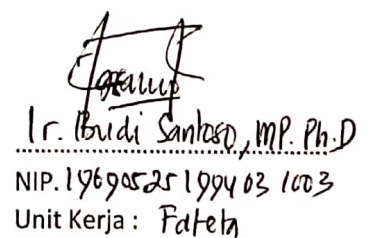 Ir. Budi Santoso, MP. Ph.D
NIP. 19690525 199403 1003
Unit Kerja : Fateta